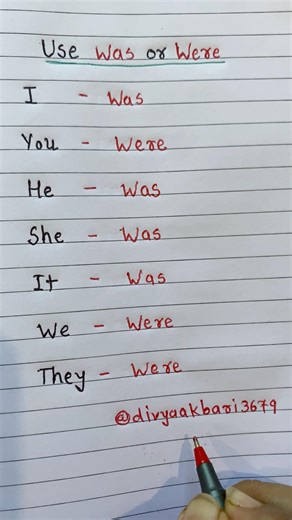 Use Was or Were
I - Was
You - Were
He - Was
She - Was
It - Was
We - Were
They - Were
@divyaakbari3679